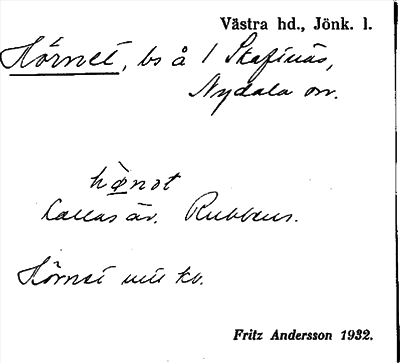 Västra hd., Jönk. l.
Hörnet, bs å 1 Skafinäs,
Nydala sn.
hø̀nət
Kallas äv. Rubbens.
Hörnet utit kb.
Fritz Andersson 1932.